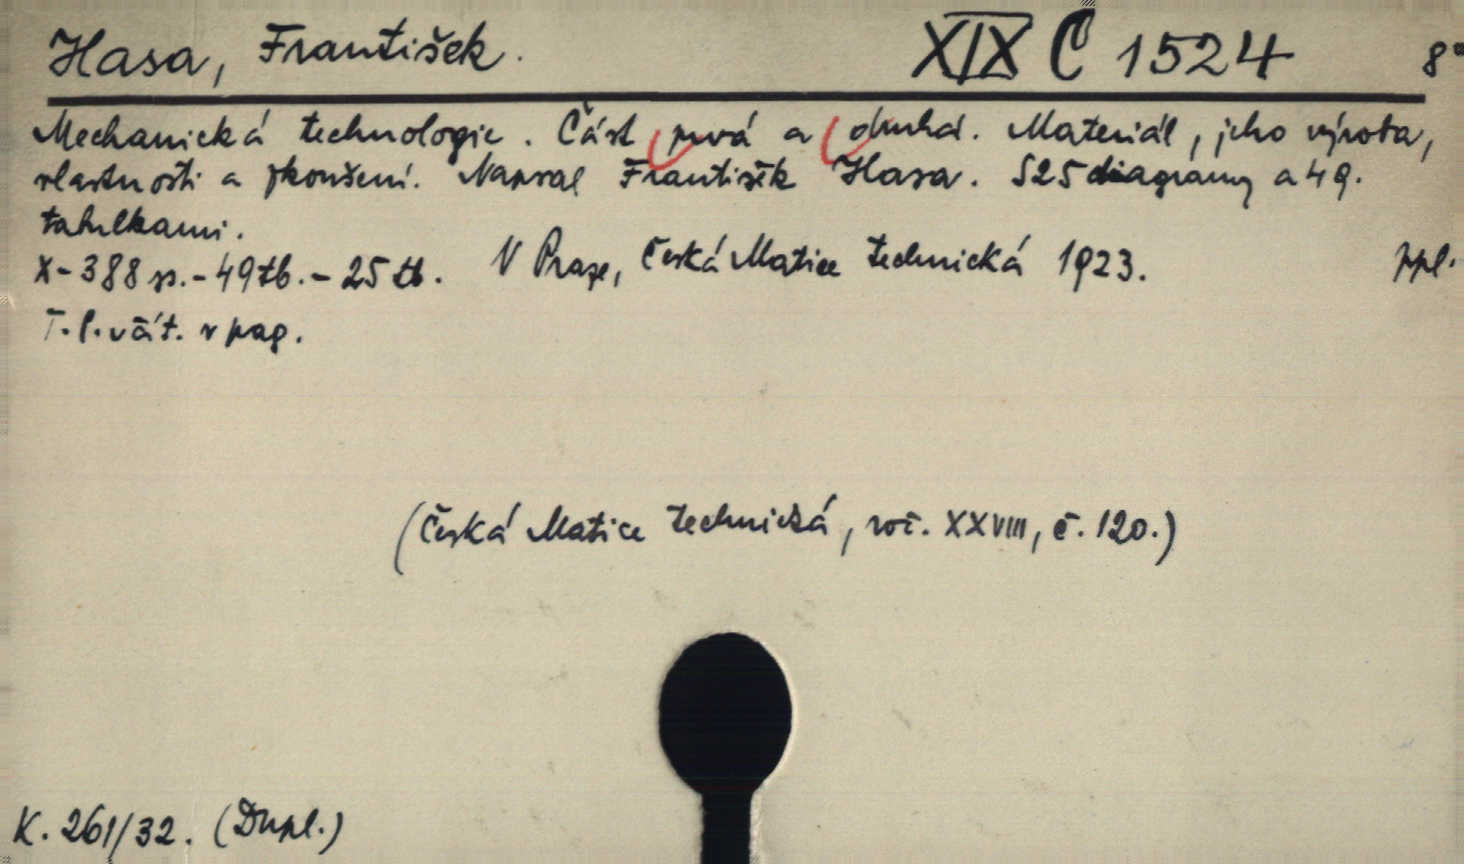 Hasa, František. XIX C 1524 8°
Mechanická technologie. Část prvá a druhá. Materiál, jeho výroba,
vlastnosti a zkoušení. Napsal František Hasa. S25 diagramy a 49.
tabulkami.
X-388 ss.-49tb.-25 tb. V Praze, Česká Matice technická 1923. ppl.
T.l. včít. v pag.
(Česká Matice technická, roč. XXVIII, č. 120.)
K. 261/32. (Dupl.)